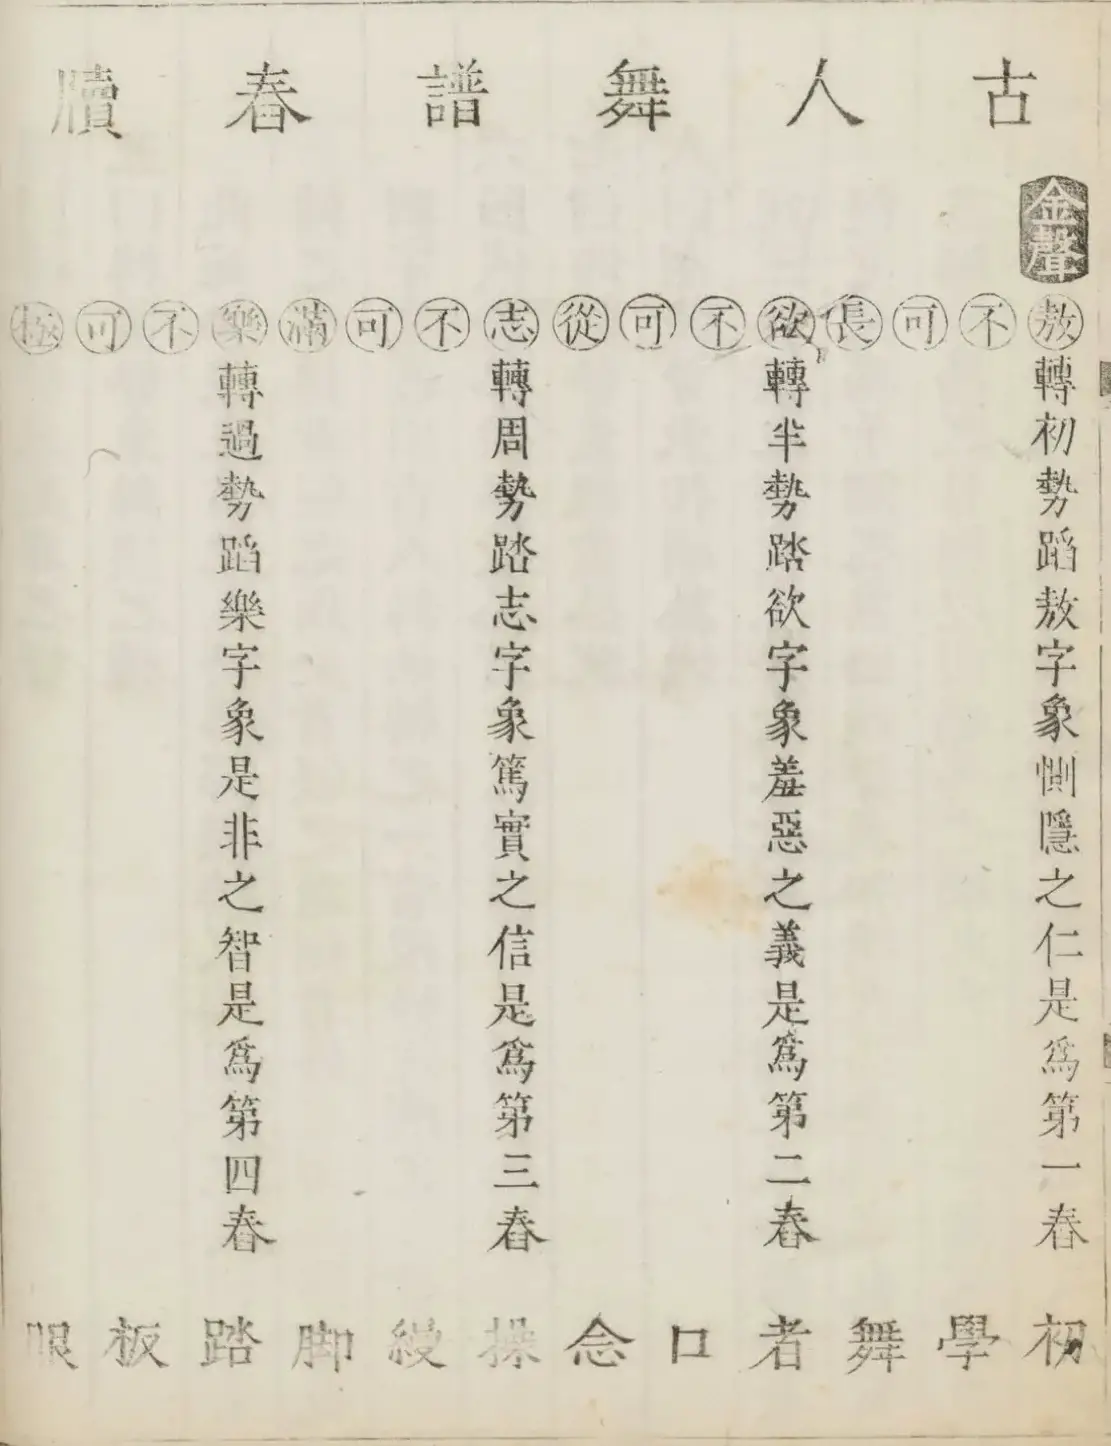 古人舞譜舂牘
金聲
敖不可長欲不可從志不可滿樂不可極
轉初勢蹈敖字象惻隱之仁是為第一舂
轉半勢踏欲字象羞惡之義是為第二舂
轉周勢踏志字象篤實之信是為第三舂
轉過勢蹈樂字象是非之智是為第四舂
初學舞者口念操縵脚踏板眼